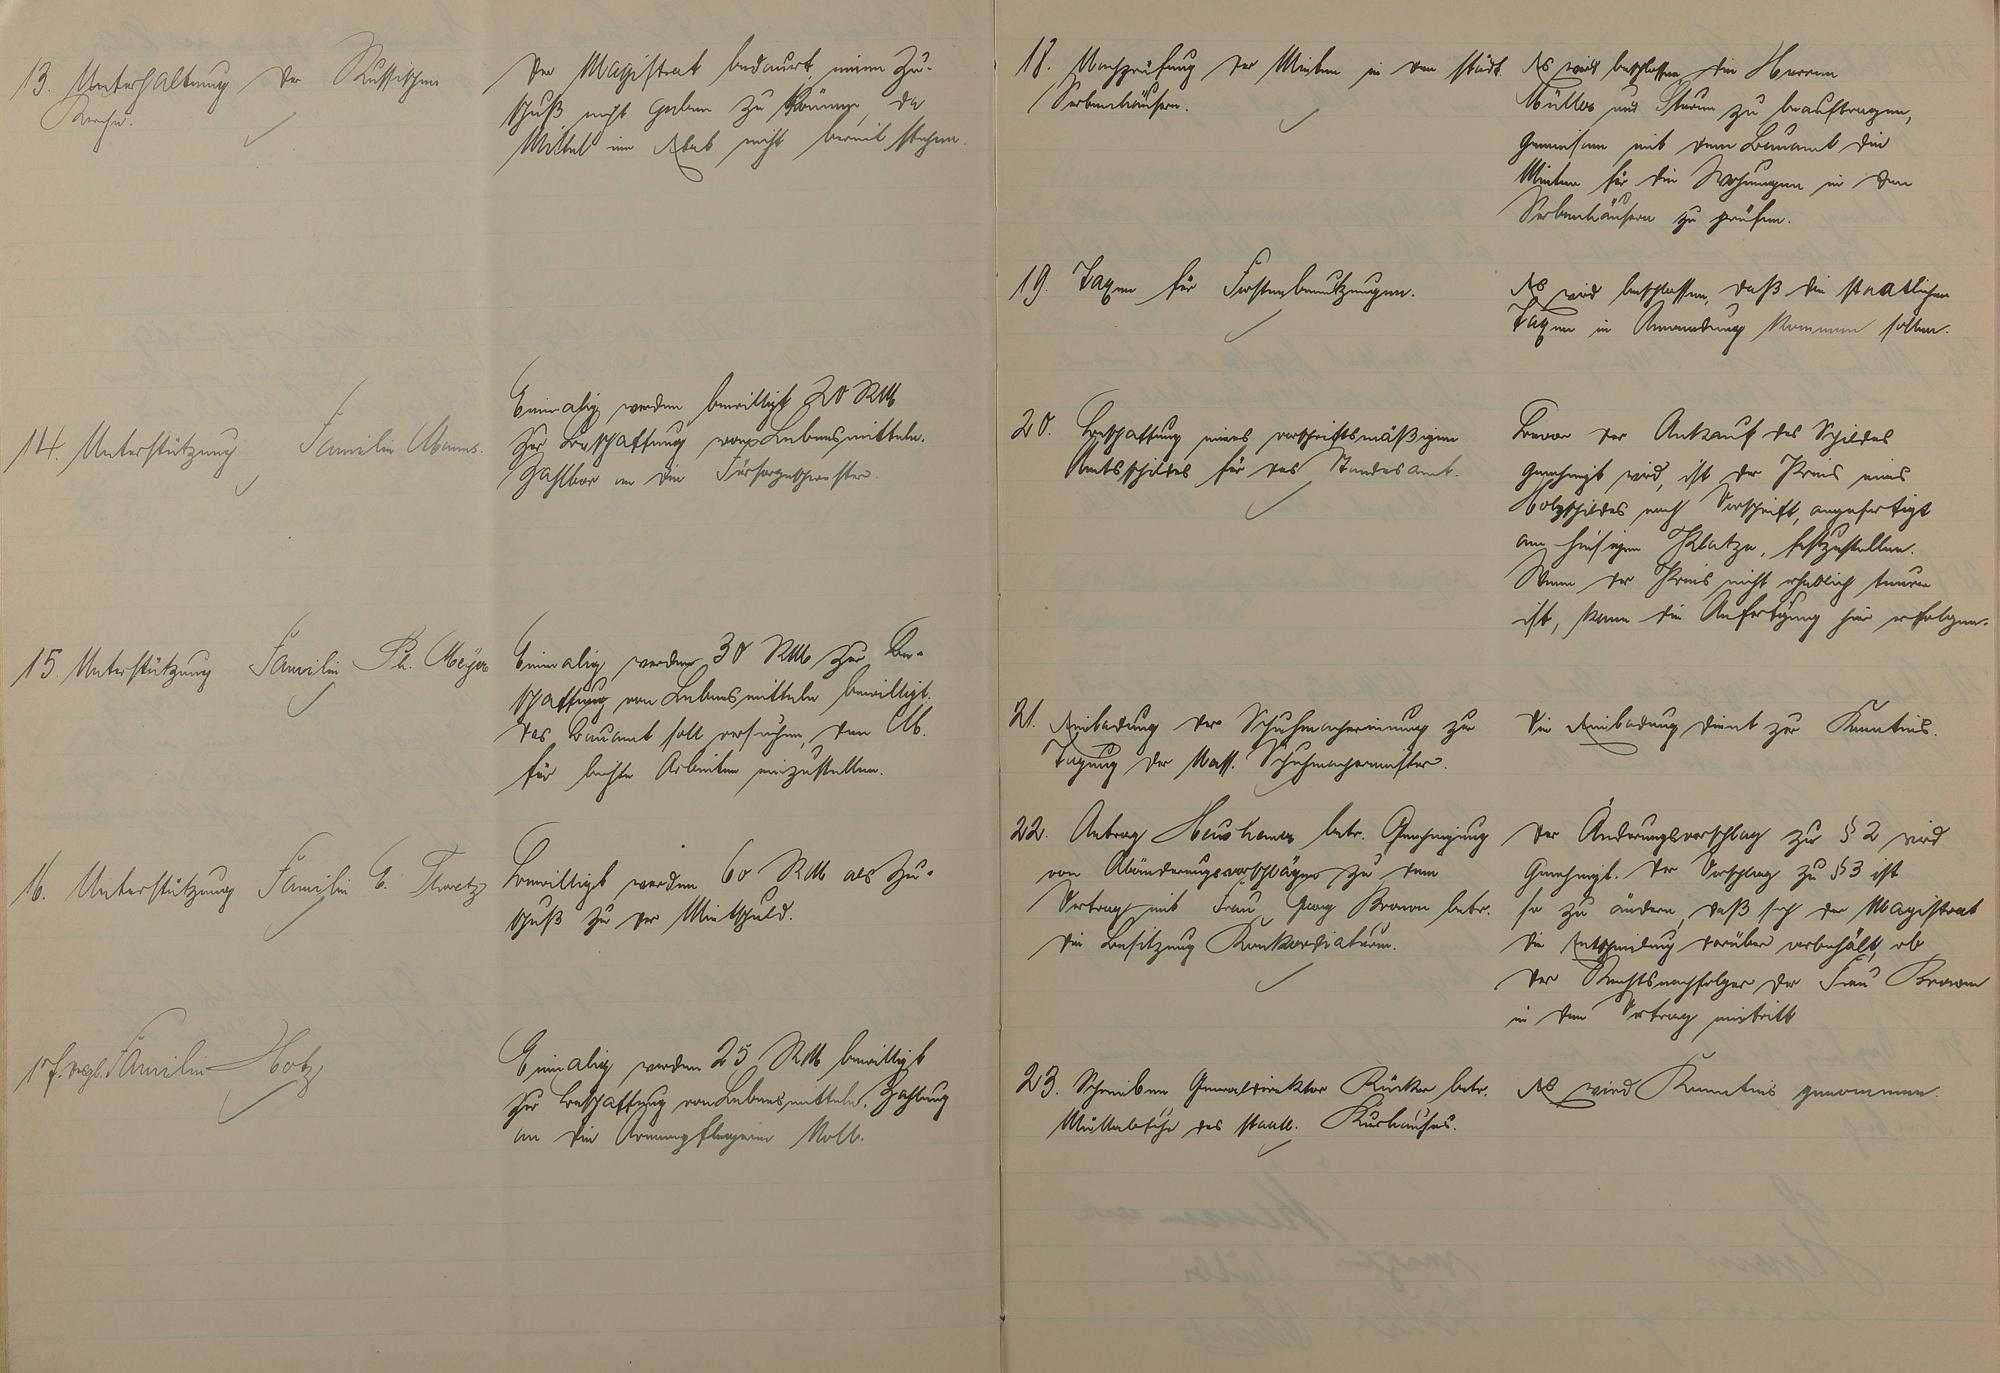 13. Unterhaltung der Russischen
Kirche.
Der Magistrat bedauert, einen Zu-
schuß nicht geben zu können, da
Mittel im Etat nicht bereit stehen.
14. Unterstützung Familie
Einmalig werden bewilligt 20 RM
zur Beschaffung von Lebensmitteln.
Zahlbar an die Fürsorgeschwester.
15. Unterstützung Familie Ph. Meyer
Einmalig werden 30 RM zur Be-
schaffung von Lebensmitteln bewilligt.
Das Bauamt soll versuchen, den M.
für leichte Arbeiten einzustellen.
16. Unterstützung Familie E.
Bewilligt werden 60 RM als Zu-
schuß zu der Mietschuld.
17. desgl. Familie Hotz
Einmalig werden 25 RM bewilligt
zur Beschaffung von Lebensmitteln. Zahlung
an die Armenpflegerin Noll.
18. Nachprüfung der Mieten in den städt.
Serbenhäusern.
Es wird beschlossen die Herren
Müller und Sturm zu beauftragen,
gemeinsam mit dem Bauamt die
Mieten für die Wohnungen in den
Serbenhäusern zu prüfen.
19. Taxen für Forstenbenutzungen.
Es wird beschlossen, daß die staatlichen
Taxen in Anwendung kommen sollen.
20. Beschaffung eines vorschriftsmäßigen
Amtsschildes für das Standesamt.
Bevor der Ankauf des Schildes
genehmigt wird, ist der Preis eines
Holzschildes nach Vorschrift, angefertigt
am hiesigen Platze, festzustellen.
Wenn der Preis nicht erheblich teurer
ist, kann die Anfertigung hier erfolgen.
21. Einladung der Schuhmacherinnung zur
Tagung der Nass. Schuhmachermeister.
Die Einladung dient zur Kenntnis.
22. Antrag betr. Genehmigung
von Abänderungsvorschlägen zu dem
Vertrag mit Frau Georg Kramm betr.
die Besitzung Konkordiaturm.
Der Änderungsvorschlag zu § 2 wird
genehmigt. Der Vorschlag zu § 3 ist
so zu ändern, daß sich der Magistrat
die Entscheidung darüber vorbehält, ob
der Rechtsnachfolger der Frau Kramm
in den Vertrag eintritt
23. Schreiben Generaldirektor Rücker betr.
Müllabfuhr des staatl. Kurhauses.
Es wird Kenntnis genommen.